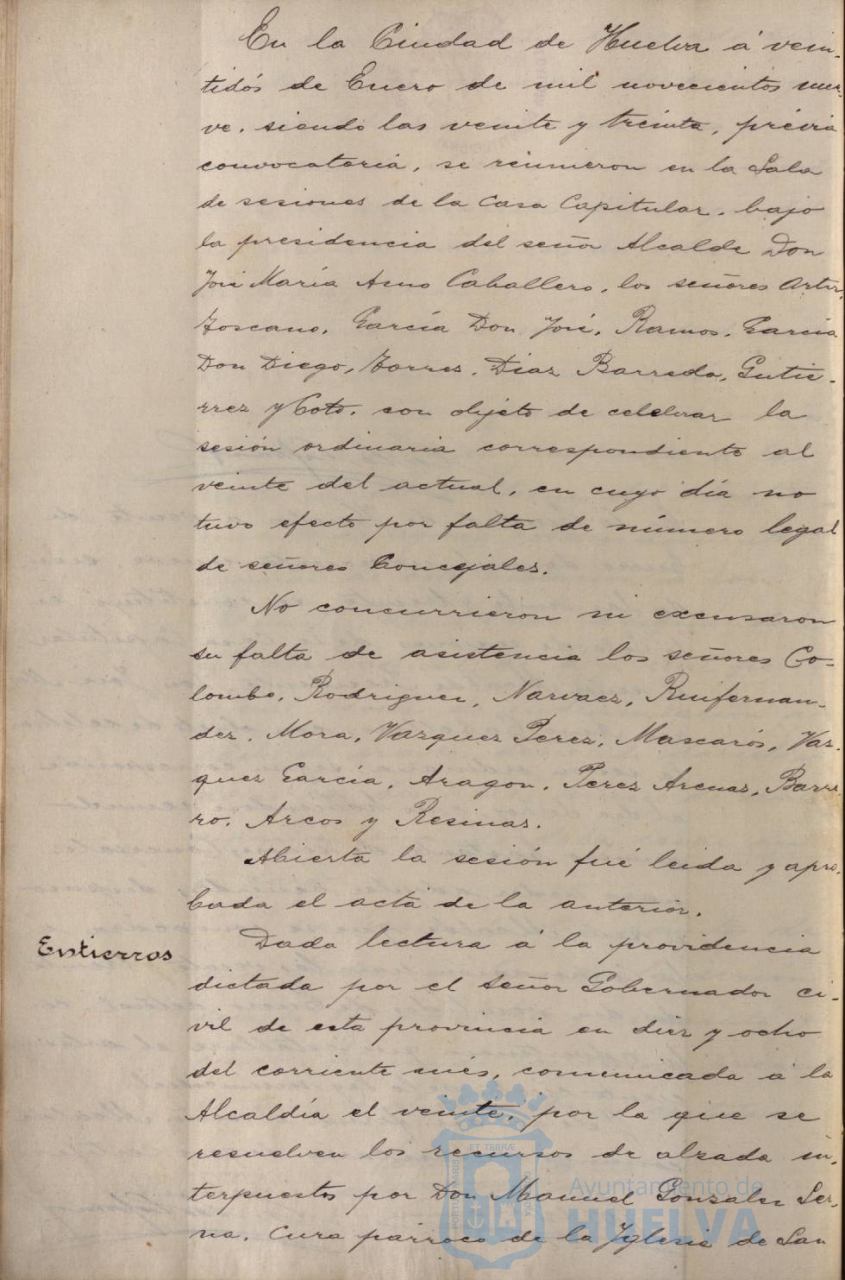 En la Ciudad de Huelva á vein-
tidós de Enero de mil novecientos nue-
ve, siendo las veinte y treinta, prévia
convocatoria, se reunieron en la Sala
de sesiones de la Casa Capitular, bajo
la presidencia del señor Alcalde Don
José María Amo Caballero, los señores
Toscano, García Don José, Ramos, García
Don Diego, Torres, Diaz Barreda, Gutie-
rrez y Coto, con objeto de celebrar la
sesión ordinaria correspondiente al
veinte del actual, en cuyo día no
tuvo efecto por falta de número legal
de señores Concejales.
No concurrieron ni excusaron
su falta de asistencia los señores Co-
lombo, Rodriguez, Narvaez, Ruifernan-
dez, Mora, Vazquez Perez, Mascarós, Vaz-
quez García, Aragon, Perez Arenas, Barre-
ro, Arcos y Resinas.
Abierta la sesión fué leida y apro-
bada el acta de la anterior.
Entierros
Dada lectura á la providencia
dictada por el señor Gobernador ci-
vil de esta provincia en diez y ocho
del corriente més, comunicada á la
Alcaldía el veinte, por la que se
resuelven los recursos de alzada in-
terpuestos por Don Manuel Gonzalez Ser-
na, Cura párroco de la Yglesia de San
Ayuntamiento de
HUELVA